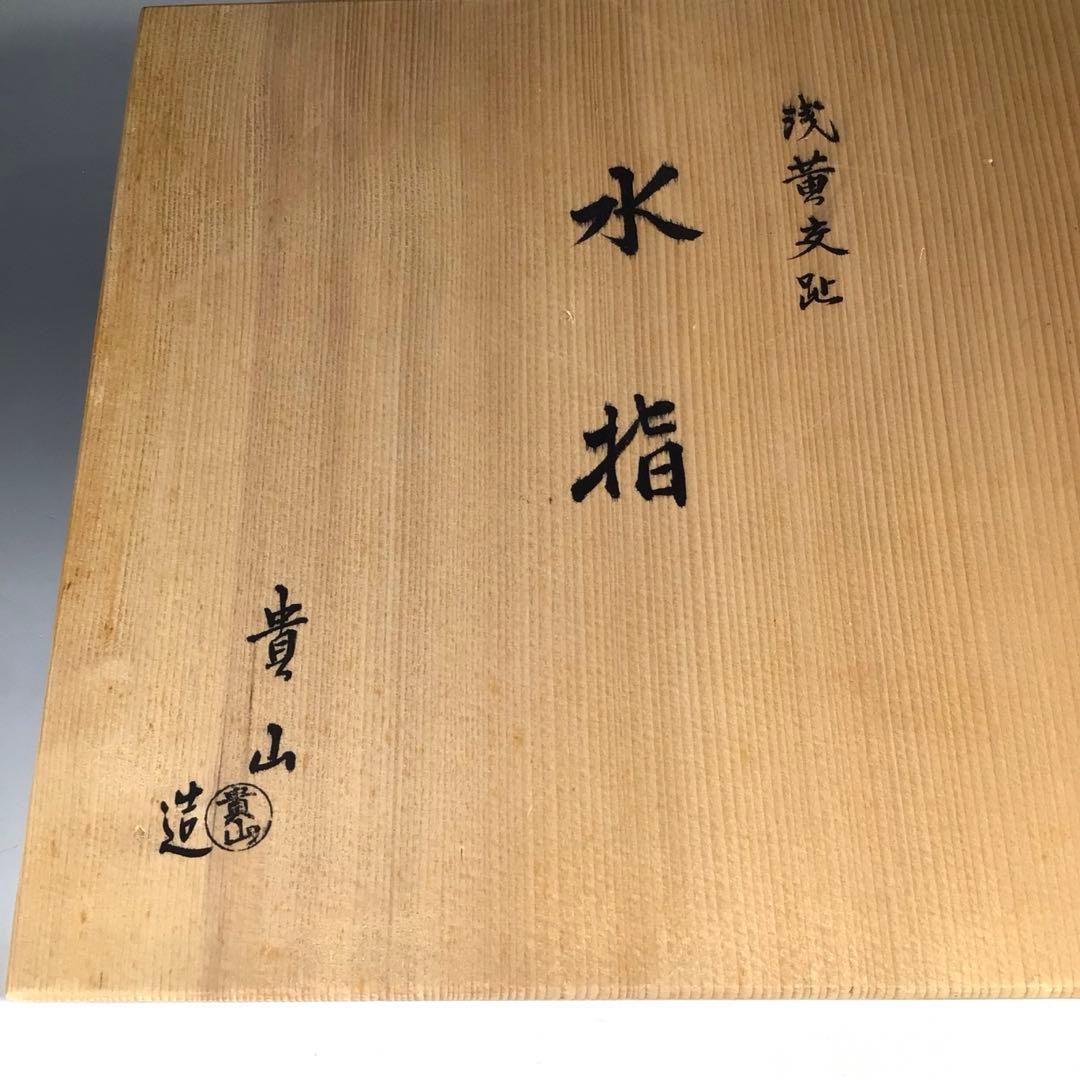 浅黄交趾
水指
貴山
造
貴山